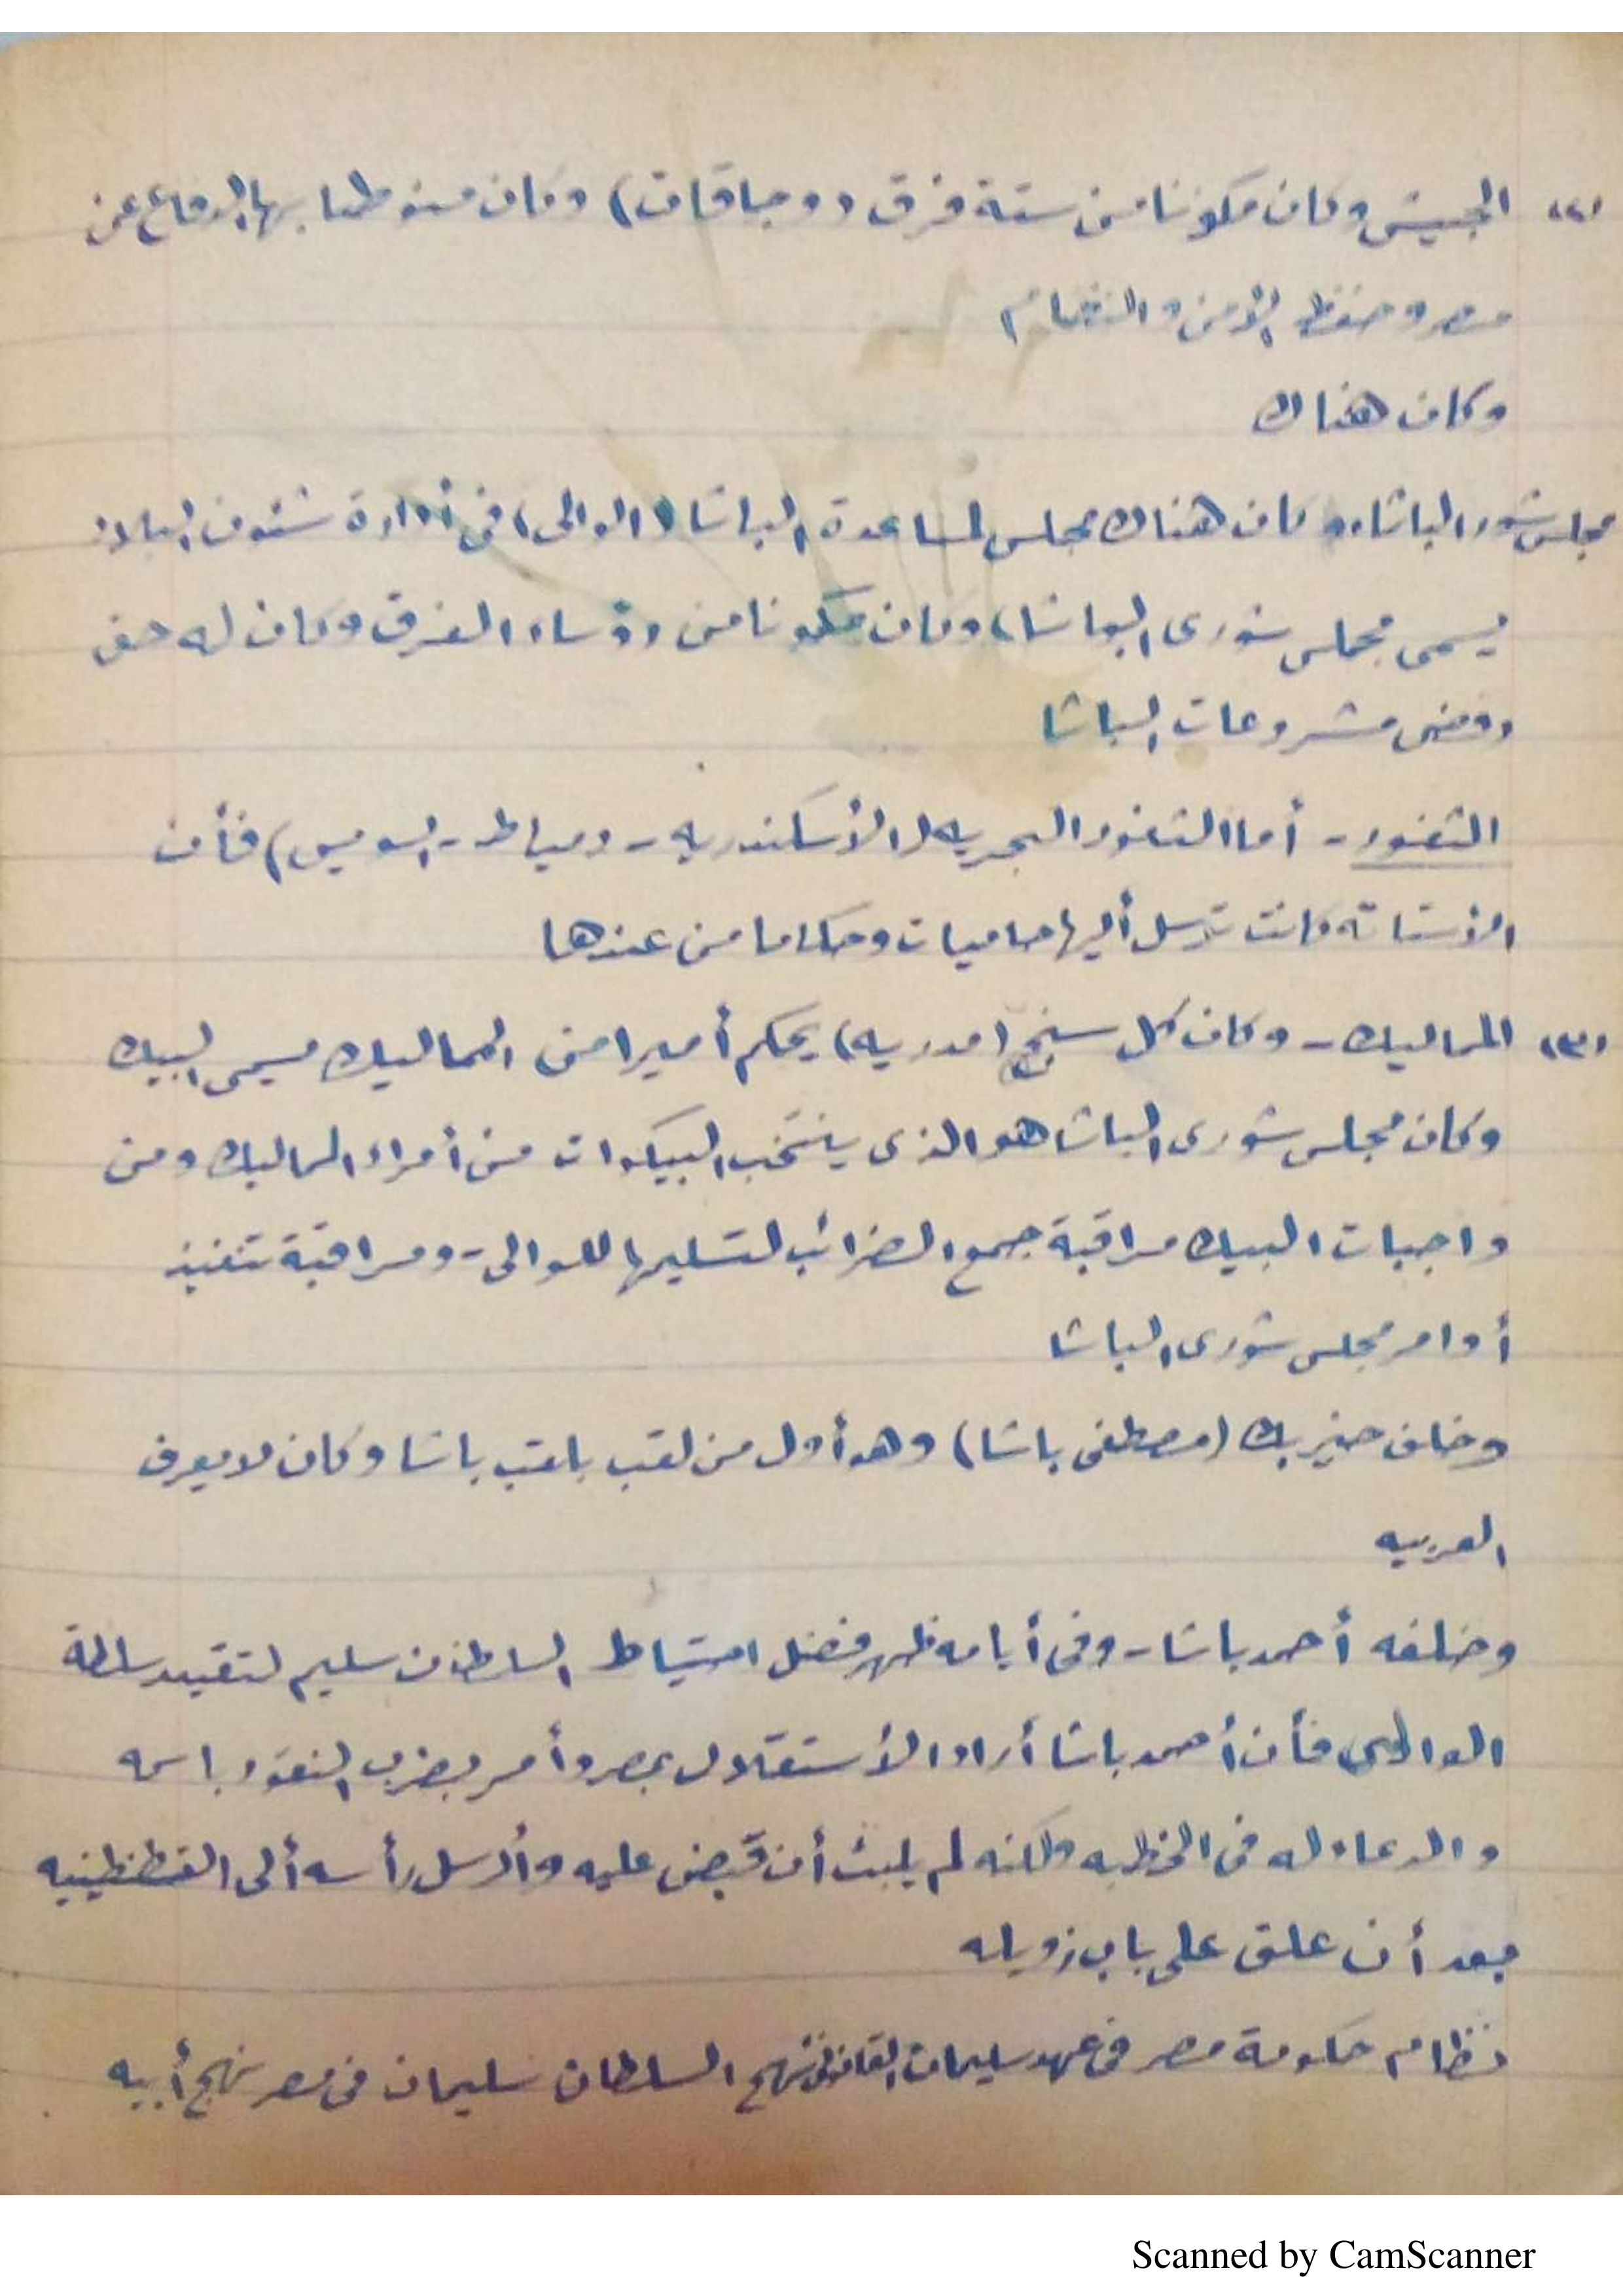 (٢) الجيش وكان مكونا من ستة فرق (وجاقات) وكان منوطا بها الدفاع عن
مصر وحفظ الأمن والنظام
وكان هناك
مجلس شورى الباشا، وكان هناك مجلس لمساعدة الباشا (الوالى) فى أدارة شئون البلاد
يسمى مجلس شورى الباشا، وكان مكونا من رؤساء الفرق وكان له حق
رفض مشروعات الباشا
الثغور - أما الثغور البحريه (الأسكندريه - دمياط - السويس) فأن
الأستانه كانت ترسل أليها حاميات وحكاما من عندها
(٣) المماليك - وكان كل سنجق (مدريه) يحكم أميرا من المماليك يسمى البيك
وكان مجلس شورى الباشا هو الذى ينتخب البيكوات من أمراء المماليك ومن
واجبات البيك مراقبة جمع الضرائب لتسليمها للوالى - ومراقبة تنفيذ
أوامر مجلس شورى الباشا
وخلف خير بك (مصطفى باشا) وهو أول من لقب بلقب باشا وكان لا يعرف
العربيه
وخلفه أحمد باشا - وفى أيامه ظهر فضل احتياط السلطان سليم لتقييد سلطة
الوالى فأن أحمد باشا أراد الأستقلال بمصر وأمر بضرب النقود باسمه
والدعاء له فى الخطبه ولكنه لم يلبث أن قبض عليه وأرسل رأسه ألى القسطنطينيه
بعد أن علق على باب زويله
نظام حكومة مصر فى عهد سليمان القانونى نهج السلطان سليمان فى مصر نهج أبيه
Scanned by CamScanner